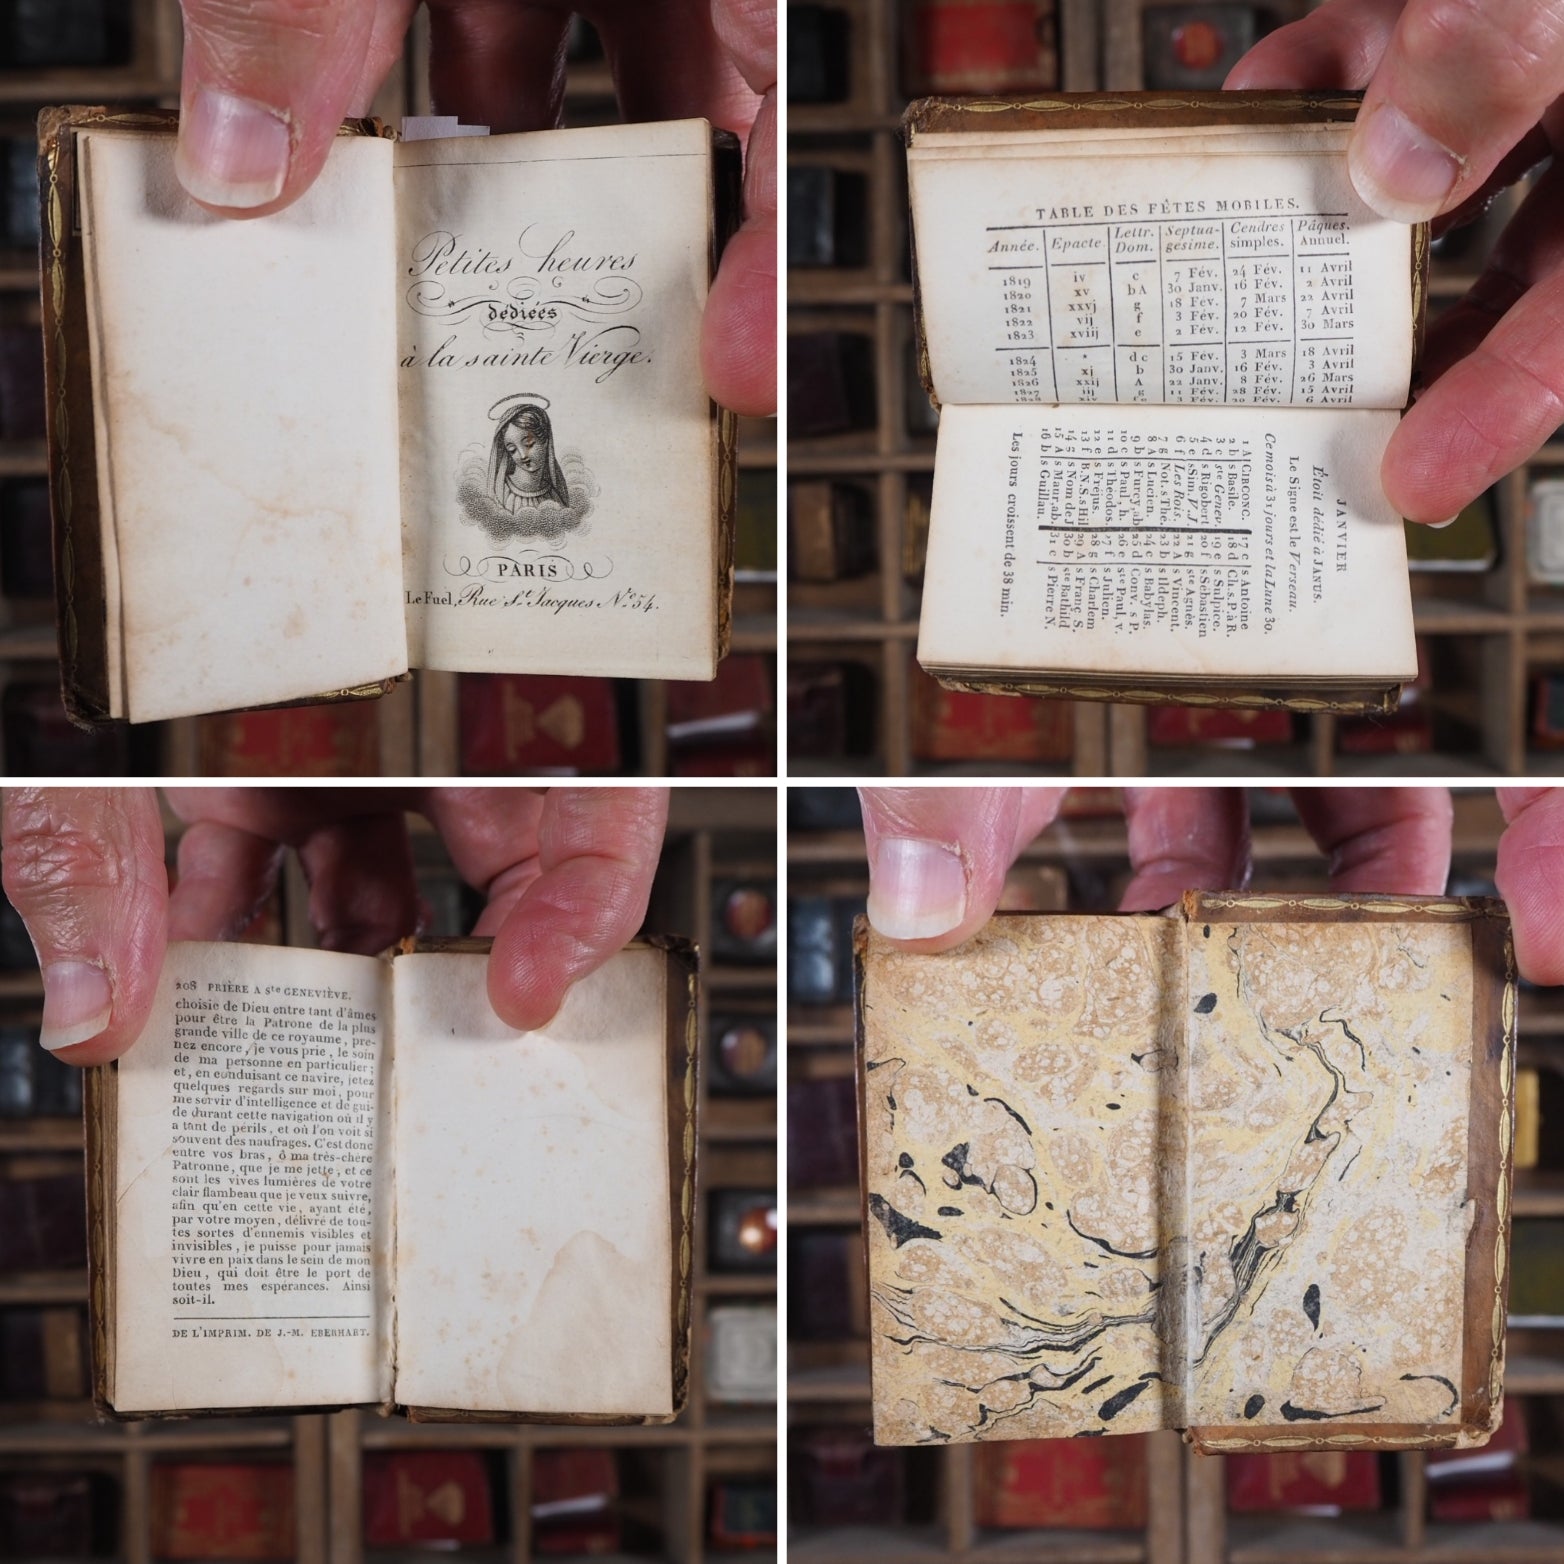 Petites heures
dédiées
à la sainte Vierge.
PARIS
Le Fuel, Rue St. Jacques No. 54.
TABLE DES FÊTES MOBILES.
Année. Epacte. Lettr. Dom. Septuagésime. Cendres simples. Pâques. Annuel.
1819 iv c 7 Fév. 24 Fév. 11 Avril
1820 xv bA 30 Janv. 16 Fév. 2 Avril
1821 xxvj g 18 Fév. 7 Mars 22 Avril
1822 vij f 3 Fév. 20 Fév. 7 Avril
1823 xviij e 2 Fév. 12 Fév. 30 Mars
1824 * d c 15 Fév. 3 Mars 18 Avril
1825 xj b 30 Janv. 16 Fév. 3 Avril
1826 xxij A 22 Janv. 8 Fév. 26 Mars
1827 iij g 11 Fév. 28 Fév. 15 Avril
1828 xiv fe 3 Fév. 20 Fév. 6 Avril
JANVIER
Étoit dédié à JANUS.
Le Signe est le Verseau.
Ce mois a 31 jours et la Lune 30.
1 A CIRCONC. 17 c s Antoine
2 b s Basile. 18 d Ch.s.P.àR.
3 c ste Genev. 19 e s Sulpice.
4 d s Rigobert 20 f s Sébastien
5 e s Sim. V.J 21 g ste Agnès.
6 f Les Rois. 22 A s Vincent.
7 g Not. s Thé. 23 b s Ildeph.
8 A s Lucien. 24 c s Babylas.
9 b s Furcy, ab. 25 d Conv. s P.
10 c s Paul, h. 26 e ste Paul, v.
11 d s Théodos. 27 f s Julien.
12 e s Fréjus. 28 g s Charlem
13 f B.N.S.s Hil 29 A s Franç. S.
14 g s Nom de J 30 b ste Bathild
15 A s Maur, ab. 31 c s Pierre N.
16 b s Guillau.
Les jours croissent de 38 min.
208 PRIÈRE A Ste GENEVIÈVE.
choisie de Dieu entre tant d'âmes
pour être la Patrone de la plus
grande ville de ce royaume, pre-
nez encore, je vous prie, le soin
de ma personne en particulier;
et, en conduisant ce navire, jetez
quelques regards sur moi, pour
me servir d'intelligence et de gui-
de durant cette navigation où il y
a tant de périls, et où l'on voit si
souvent des naufrages. C'est donc
entre vos bras, ô ma très-chère
Patronne, que je me jette, et ce
sont les vives lumières de votre
clair flambeau que je veux suivre,
afin qu'en cette vie, ayant été,
par votre moyen, délivré de tou-
tes sortes d'ennemis visibles et
invisibles, je puisse pour jamais
vivre en paix dans le sein de mon
Dieu, qui doit être le port de
toutes mes espérances. Ainsi
soit-il.
DE L'IMPRIM. DE J.-M. EBERHART.